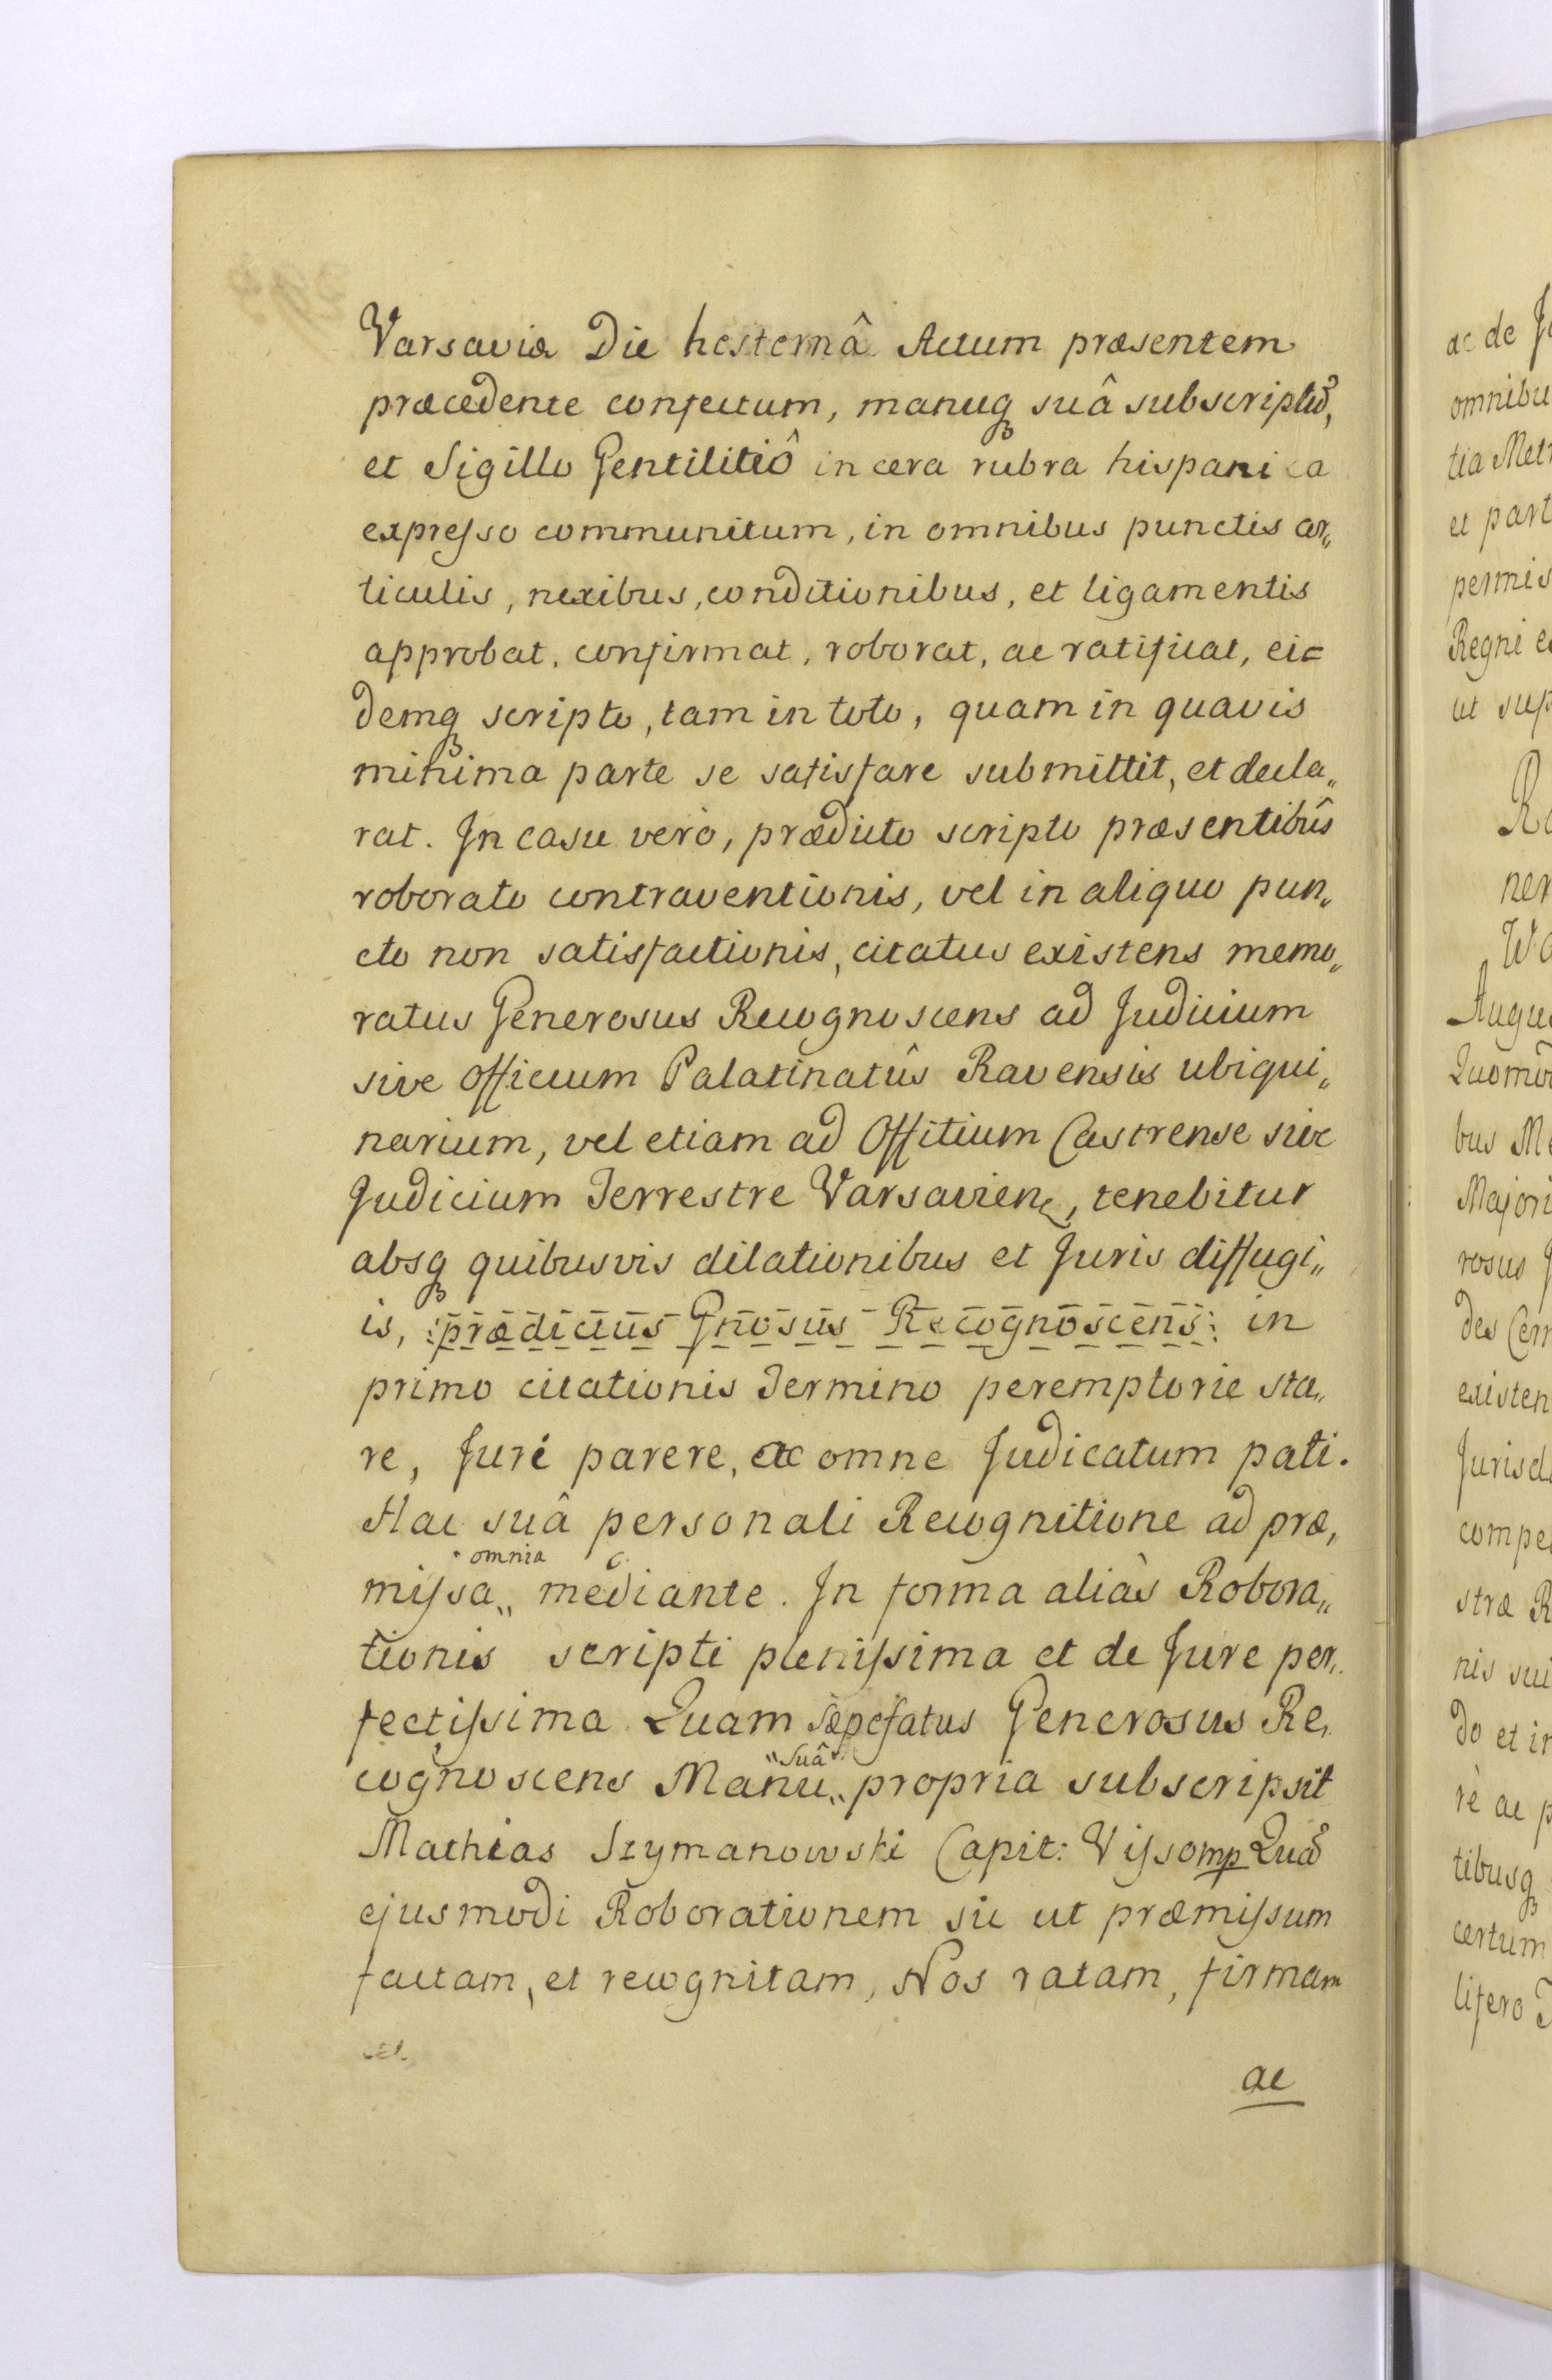 Varsaviæ Die hesternâ Actum præsentem
præcedente confectum, manuq; suâ subscriptũ,
et Sigillo Gentilitiô in cera rubra hispanica
expresso communitum, in omnibus punctis ar„
ticulis, nexibus, conditionibus, et ligamentis
approbat, confirmat, roborat, ac ratificat, ei=
demq; scripto, tam in toto, quam in quavis
minima parte se satisfare submittit, et decla„
rat. In casu verò, prædicto scripto præsentibûs
roborato contraventionis, vel in aliquo pun„
cto non satisfactionis, citatus existens memo„
ratus Generosus Recognoscens ad Judicium
sive Officium Palatinatûs Ravensis ubiqui„
narium, vel etiam ad Offitium Castrense sive
Judicium Terrestre Varsavien, tenebitur
absq; quibusvis dilationibus et Juris diffugi„
is, :prædictus Gnosus Recognoscens: in
primo citationis Termino peremptorie sta„
re, Juri parere, ac omne Judicatum pati.
Hac suâ personali Recognitione ad præ„
omnia
missa„ mediante. In forma aliàs Robora„
tionis scripti plenissima et de Jure per„
fectissima Quam sæpefatus Generosus Re„
„suâ
cognoscens Manu„ propria subscripsit
Mathias Szymanowski Capit: Visso mp Quã
ejusmodi Roborationem sic ut præmissum
factam, et recognitam, Nos ratam, firmam
ac
ac de
omnibu
tia Metr
et part
permis
Regni
ut sup
ner
Augus
bus
Majori
rosus
des
existen
Jurisd
compe
stræ R
nis sui
do et in
rè ac p
tibusq;
certum
lifero